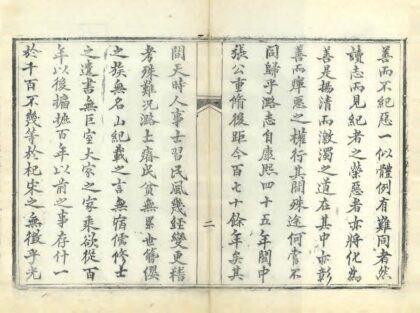 善而不紀惡一似體例有難同者然
讀志而見紀者之榮惡者亦將化為
善是揚清而激濁之道在其中亦彰
善而癉惡之權行其間殊途何嘗不
同歸乎潞志自康熙四十五年閩中
張公重脩後距今百七十餘年矣其
二
間天時人事士習民風幾經變更稽
考殊難況潞土瘠民貧無累世簪纓
之族無名山紀載之言無宿儒修士
之遺書無巨室大家之家乘欲從百
年以後搜百年以前之事存什一
於千百不幾等於杞宋之無徵乎光